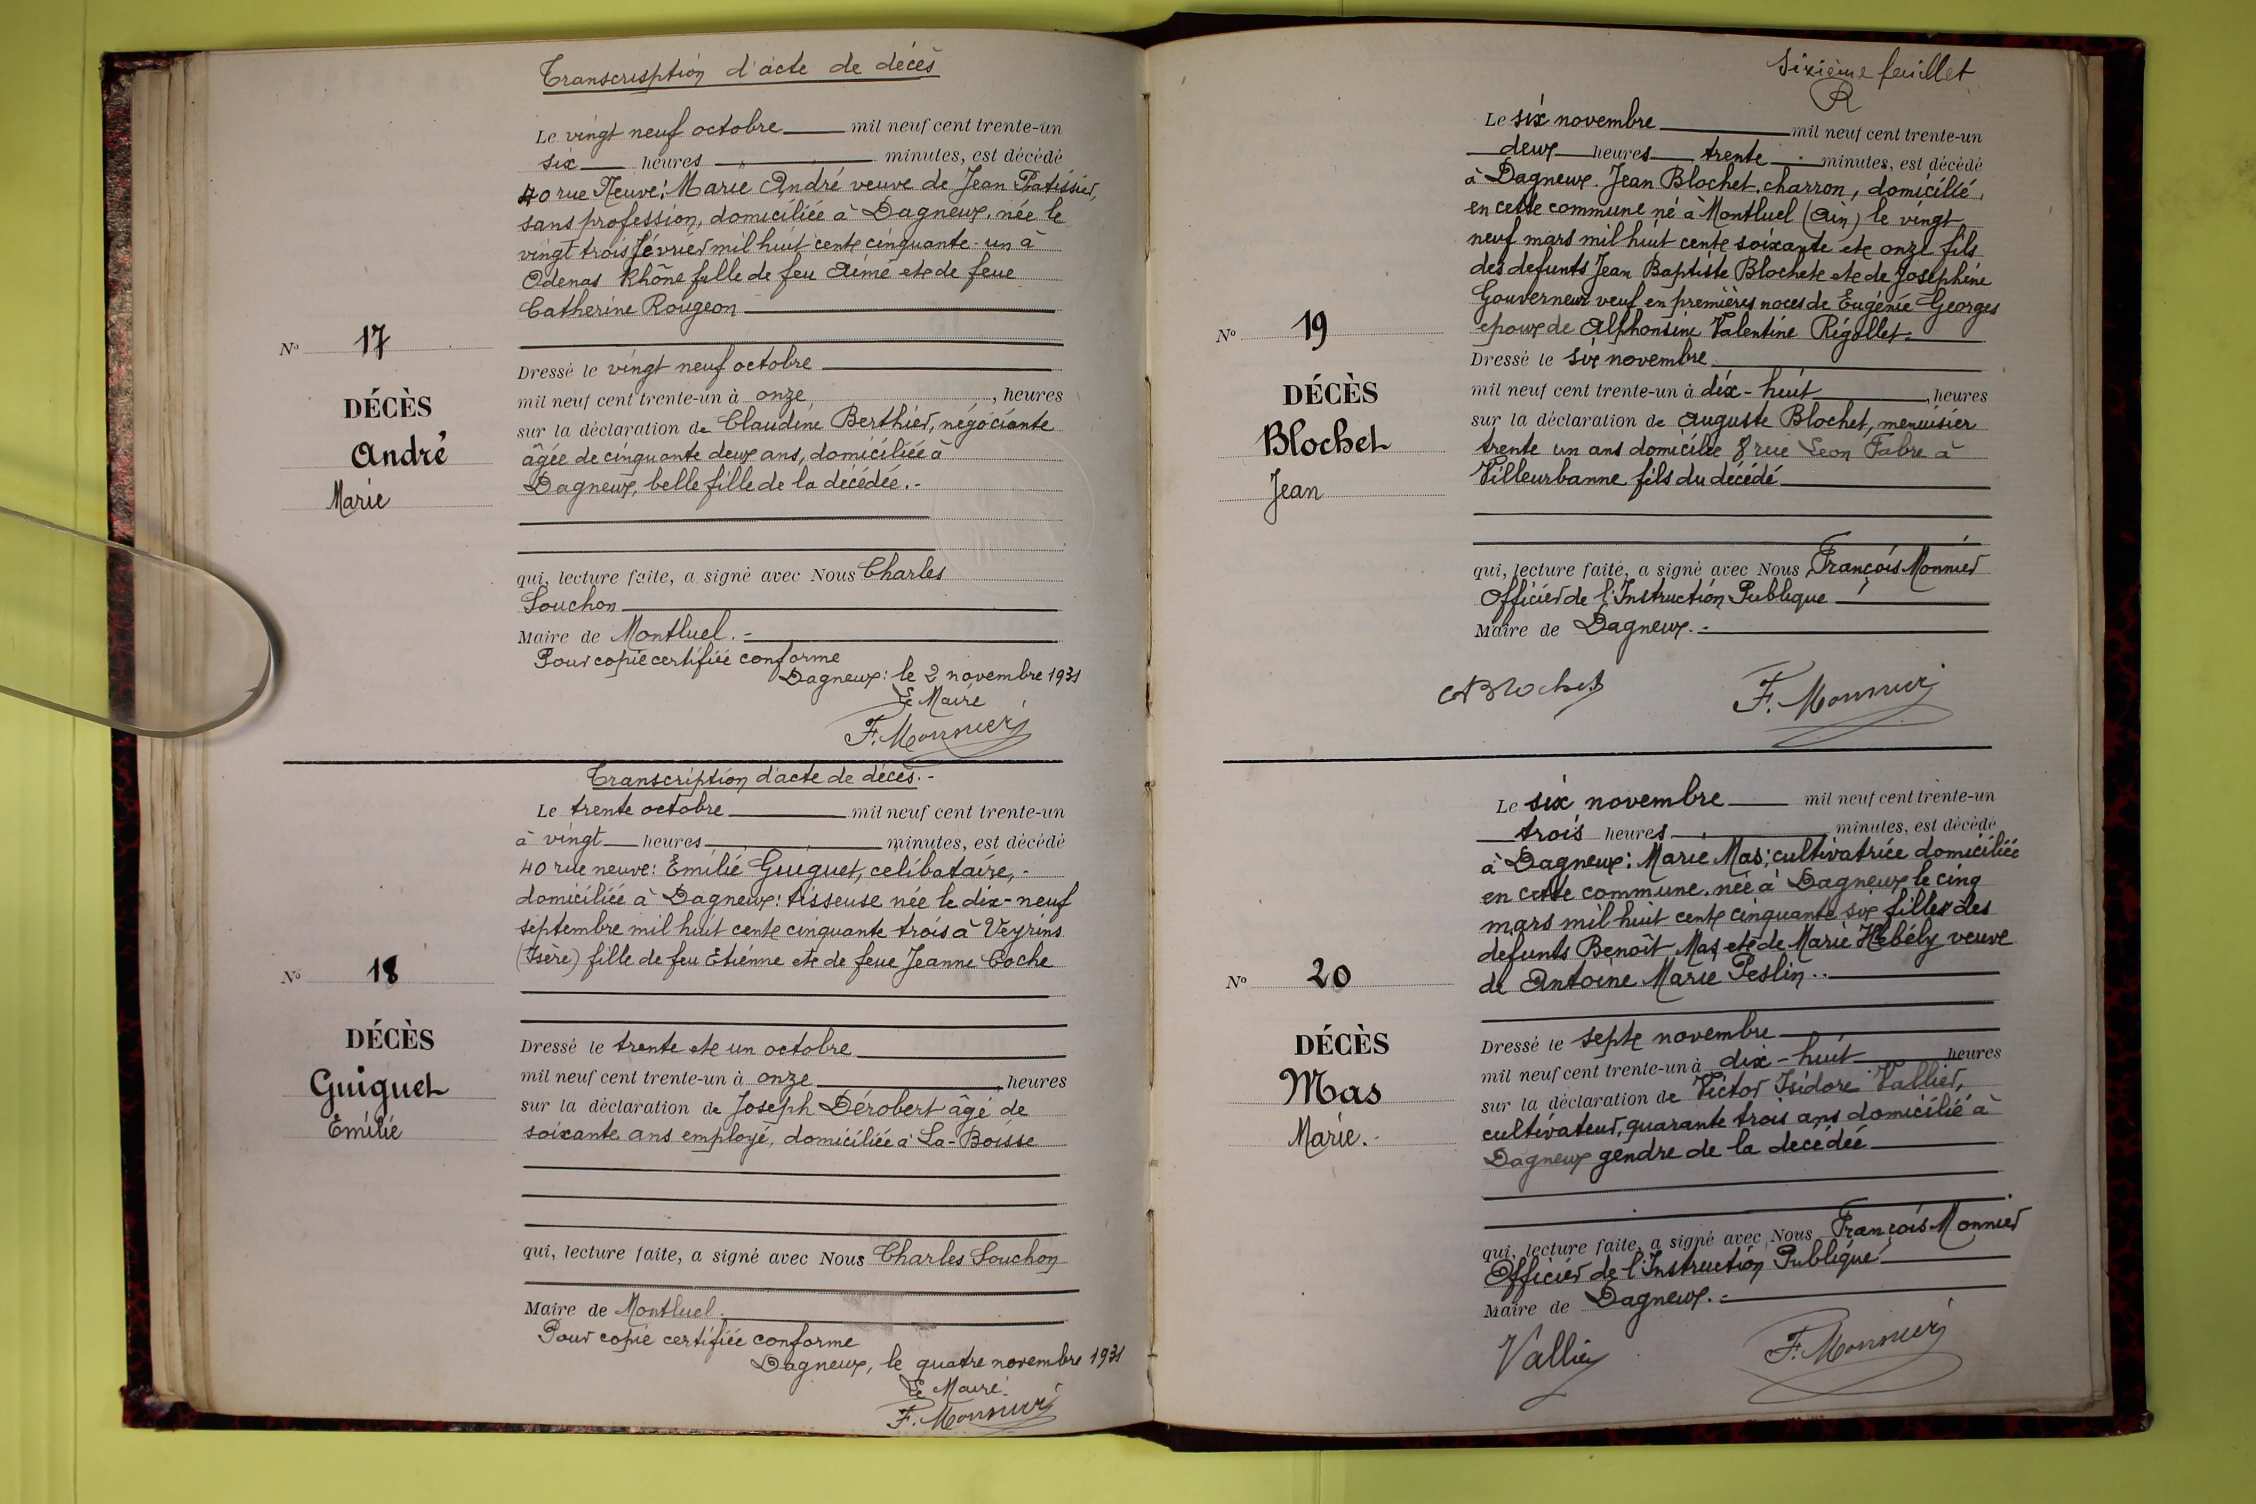 Transcrisption d'acte de décès
Le vingt neuf octobre mil neuf cent trente-un
six heures minutes, est décédé
40 rue Neuve: Marie André veuve de Jean Patissier,
sans profession, domiciliée à Dagneux, née le
vingt trois février mil huit cent cinquante-un à
Odenas Rhône fille de feu Aimé et de feue
Catherine Rougeon
No 17
DÉCÈS
André
Marie
Dressé le vingt neuf octobre
mil neuf cent trente-un à onze, heures
sur la déclaration de Claudine Berthier, négociante
âgée de cinquante deux ans, domiciliée à
Dagneux, belle fille de la décédée.-
qui, lecture faite, a signé avec Nous Charles
Souchon
Maire de Montluel.-
Pour copie certifiée conforme
Dagneux: le 2 novembre 1931
Le Maire
F. Monnier
Transcription d'acte de décès.-
Le trente octobre mil neuf cent trente-un
à vingt heures minutes, est décédé
40 rue neuve: Emilie Guiguet, celibataire,-
domiciliée à Dagneux: tisseuse née le dix-neuf
septembre mil huit cent cinquante trois à Veyrins
(Isère) fille de feu Etienne et de feue Jeanne Coche
No 18
DÉCÈS
Guiguet
Emilie
Dressé le trente et un octobre
mil neuf cent trente-un à onze, heures
sur la déclaration de Joseph Dérobert âgé de
soixante ans employé, domiciliée à La-Boisse
qui, lecture faite, a signé avec Nous Charles Souchon
Maire de Montluel.
Pour copie certifiée conforme
Dagneux, le quatre novembre 1931
Le Maire
F. Monnier
Sixième feuillet
R
Le six novembre mil neuf cent trente-un
deux heures trente minutes, est décédé
à Dagneux. Jean Blochet, charron, domicilié,
en cette commune né à Montluel (Ain) le vingt
neuf mars mil huit cent soixante et onze fils
des defunts Jean Baptiste Blochet et de Josephine
Gouverneur veuf en premières noces de Eugénie Georges
epoux de Alphonsine Valentine Régollet.
No 19
DÉCÈS
Blochet
Jean
Dressé le six novembre
mil neuf cent trente-un à dix-huit, heures
sur la déclaration de Auguste Blochet, menuisier
trente un ans domicilié 8 rue Leon Fabre à
Villeurbanne fils du décédé
qui, lecture faite, a signé avec Nous François Monnier
Officier de l'Instruction Publique
Maire de Dagneux.-
A Blochet F. Monnier
Le six novembre mil neuf cent trente-un
trois heures minutes, est décédé
à Dagneux: Marie Mas; cultivatrice domiciliée
en cette commune, née à Dagneux le cinq
mars mil huit cent cinquante six filles des
defunts Benoît Mas et de Marie Hebély veuve
de Antoine Marie Peslin..
No 20
DÉCÈS
Mas
Marie.-
Dressé le sept novembre
mil neuf cent trente-un à dix-huit heures
sur la déclaration de Victor Isidore Vallier,
cultivateur, quarante trois ans domicilié à
Dagneux gendre de la décédée
qui, lecture faite, a signé avec Nous François Monnier
Officier de l'Instruction Publique
Maire de Dagneux.-
Vallier F. Monnier